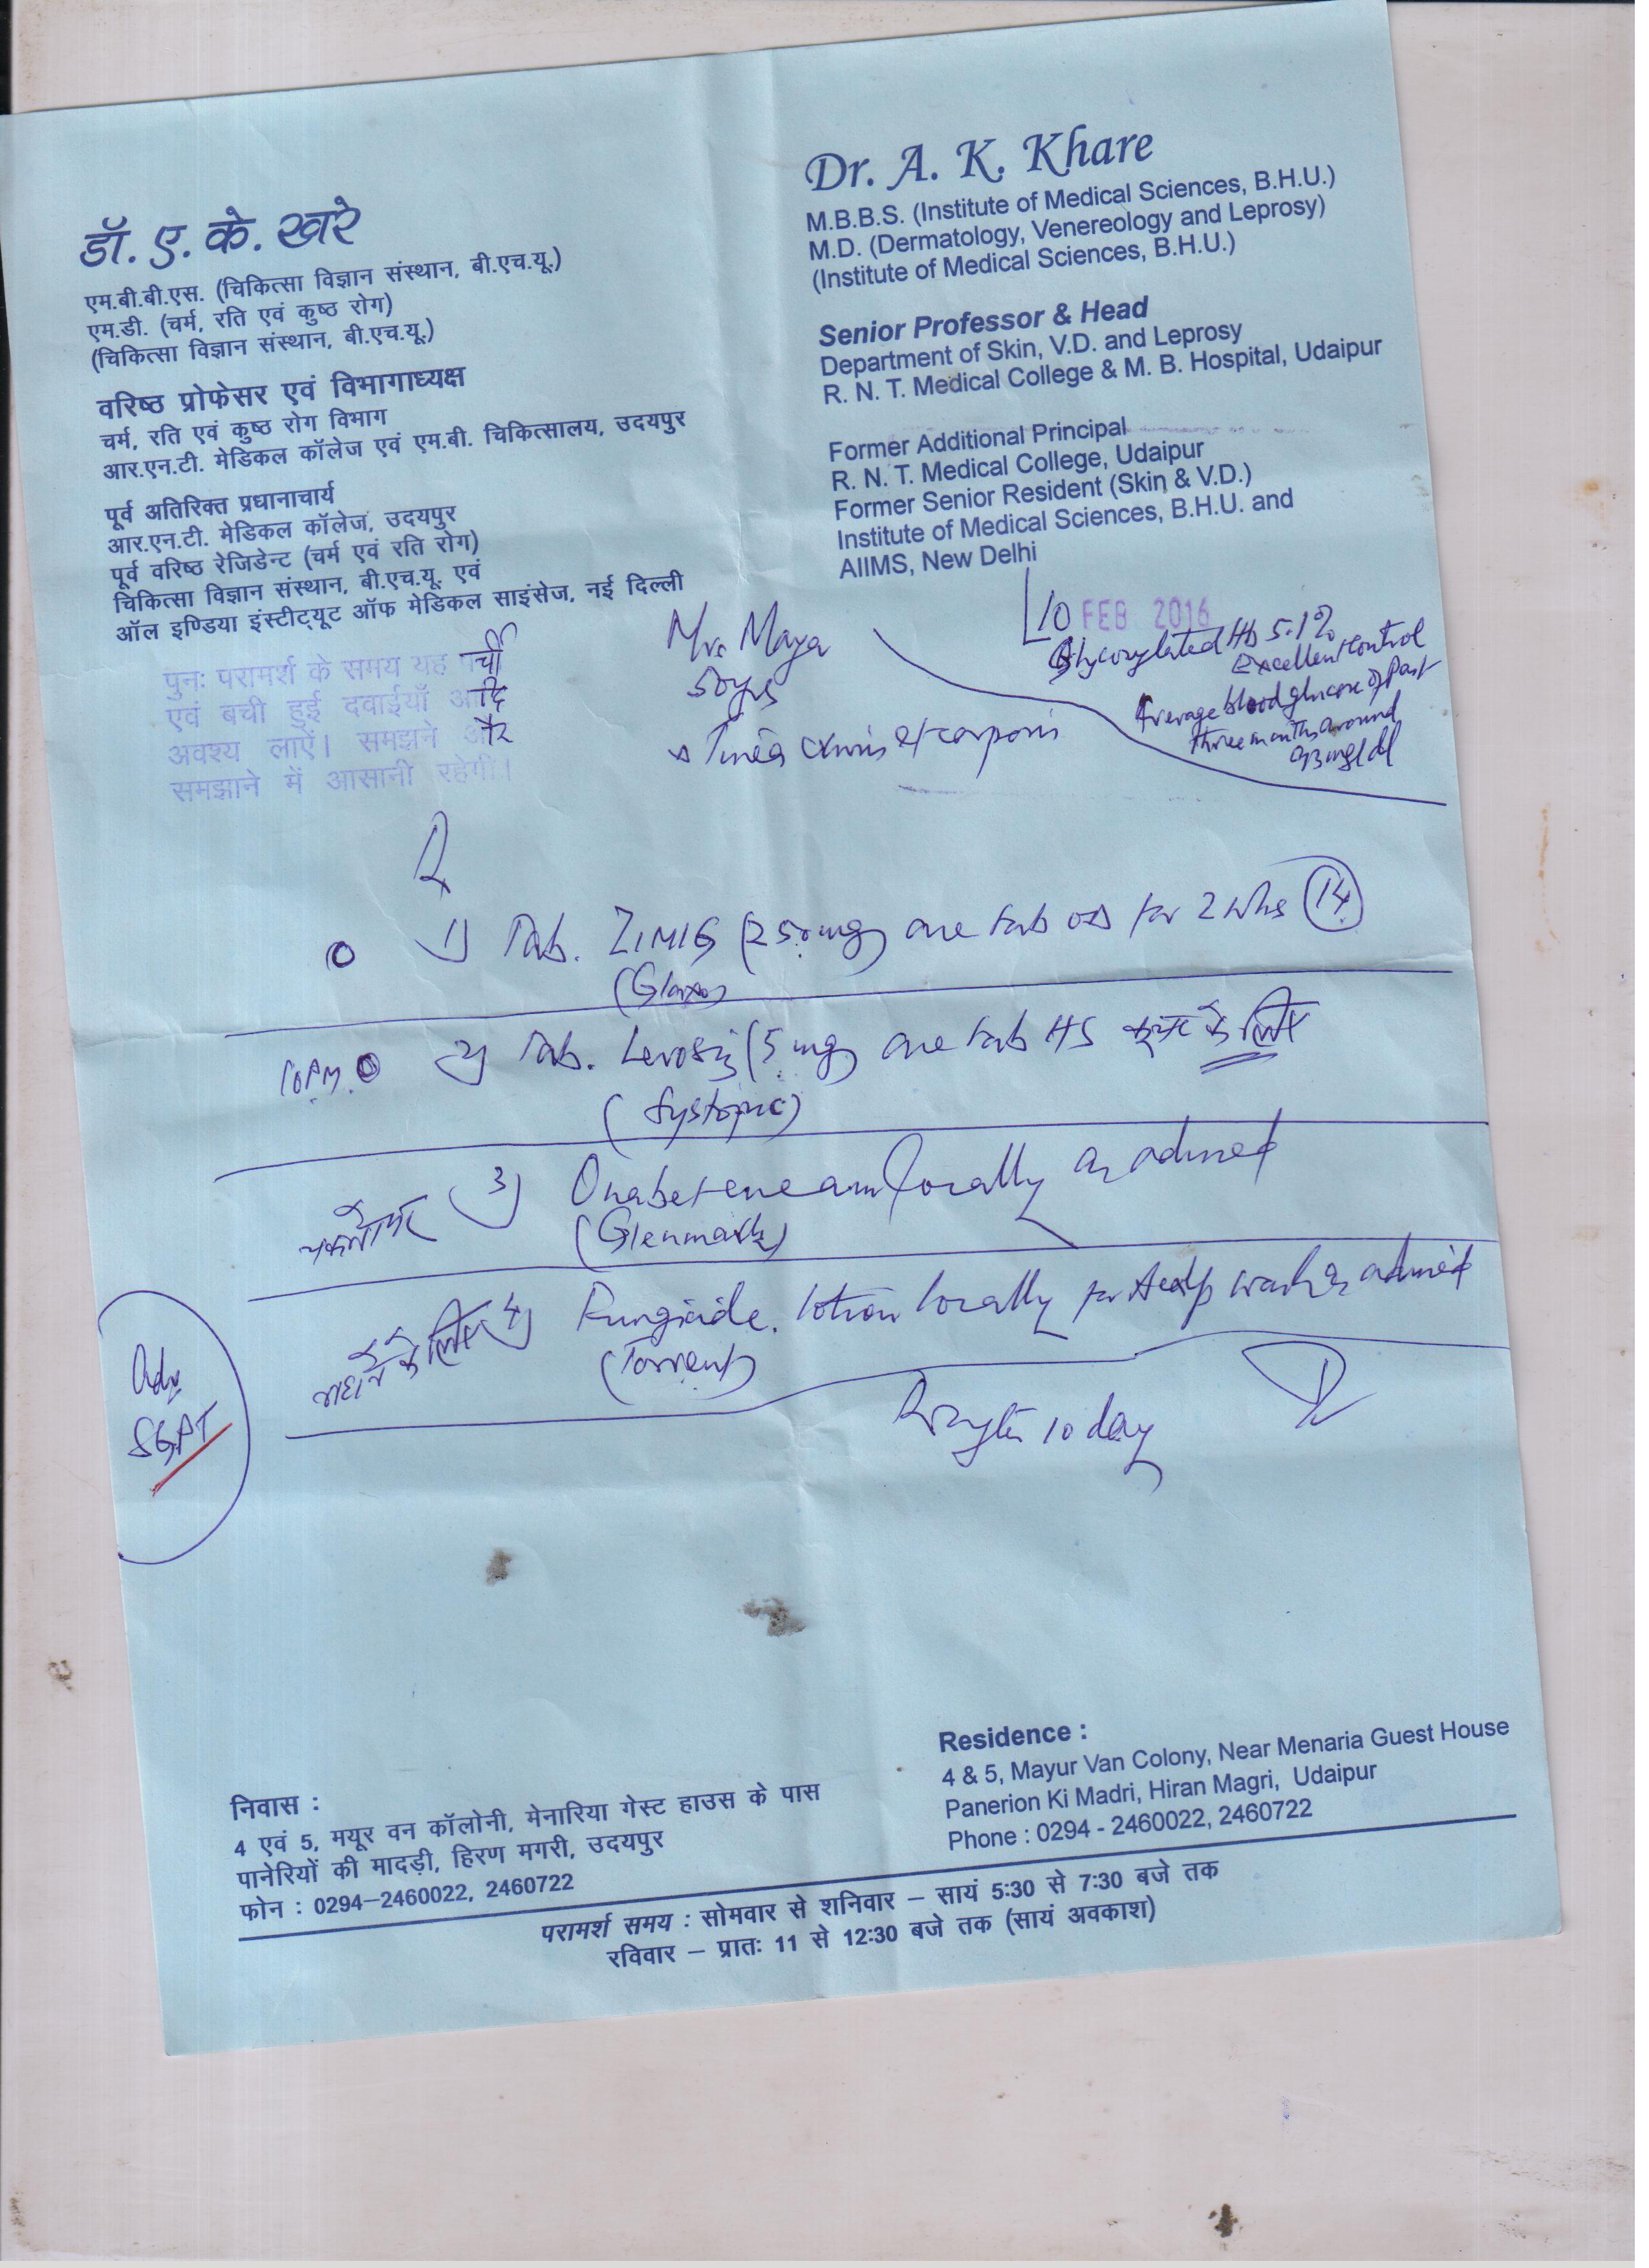 Dr. A. K. Khare
M.B.B.S. (Institute of Medical Sciences, B.H.U.)
M.D. (Dermatology, Venereology and Leprosy)
(Institute of Medical Sciences, B.H.U.)
Senior Professor & Head
Department of Skin, V.D. and Leprosy
R. N. T. Medical College & M. B. Hospital, Udaipur
Former Additional Principal
R. N. T. Medical College, Udaipur
Former Senior Resident (Skin & V.D.)
Institute of Medical Sciences, B.H.U. and
AIIMS, New Delhi
डॉ. ए. के. खरे
एम.बी.बी.एस. (चिकित्सा विज्ञान संस्थान, बी.एच.यू.)
एम.डी. (चर्म, रति एवं कुष्ठ रोग)
(चिकित्सा विज्ञान संस्थान, बी.एच.यू.)
वरिष्ठ प्रोफेसर एवं विभागाध्यक्ष
चर्म, रति एवं कुष्ठ रोग विभाग
आर.एन.टी. मेडिकल कॉलेज एवं एम.बी. चिकित्सालय, उदयपुर
पूर्व अतिरिक्त प्रधानाचार्य
आर.एन.टी. मेडिकल कॉलेज, उदयपुर
पूर्व वरिष्ठ रेजिडेन्ट (चर्म एवं रति रोग)
चिकित्सा विज्ञान संस्थान, बी.एच.यू. एवं
ऑल इण्डिया इंस्टीट्यूट ऑफ मेडिकल साइंसेज, नई दिल्ली
पुनः परामर्श के समय यह पर्ची
एवं बची हुई दवाईयाँ आदि
अवश्य लाऐं। समझने और
समझाने में आसानी रहेगी।
10 FEB 2016
Glycosylated Hb 5.1%
Excellent control
Average blood glucose of Past
three months around
93 mg/dl
Maya
50yrs
Tinea cruris et corporis
1) Tab. ZIMIG (250mg) one tab OD for 2 wks 14
(Glaxo)
10 P.M. 2) Tab. Levosiz (5 mg) one tab HS के लिए
(Systopic)
3) Onabet cream locally as advised
(Glenmark)
नहाने के लिए 4) Fungicide lotion locally for wash as advised
(Torrent)
10 day
Adv
SGPT
Residence :
4 & 5, Mayur Van Colony, Near Menaria Guest House
Panerion Ki Madri, Hiran Magri, Udaipur
Phone : 0294 - 2460022, 2460722
निवास :
4 एवं 5, मयूर वन कॉलोनी, मेनारिया गेस्ट हाउस के पास
पानेरियों की मादड़ी, हिरण मगरी, उदयपुर
फोन : 0294–2460022, 2460722
परामर्श समय : सोमवार से शनिवार – सायं 5:30 से 7:30 बजे तक
रविवार – प्रातः 11 से 12:30 बजे तक (सायं अवकाश)